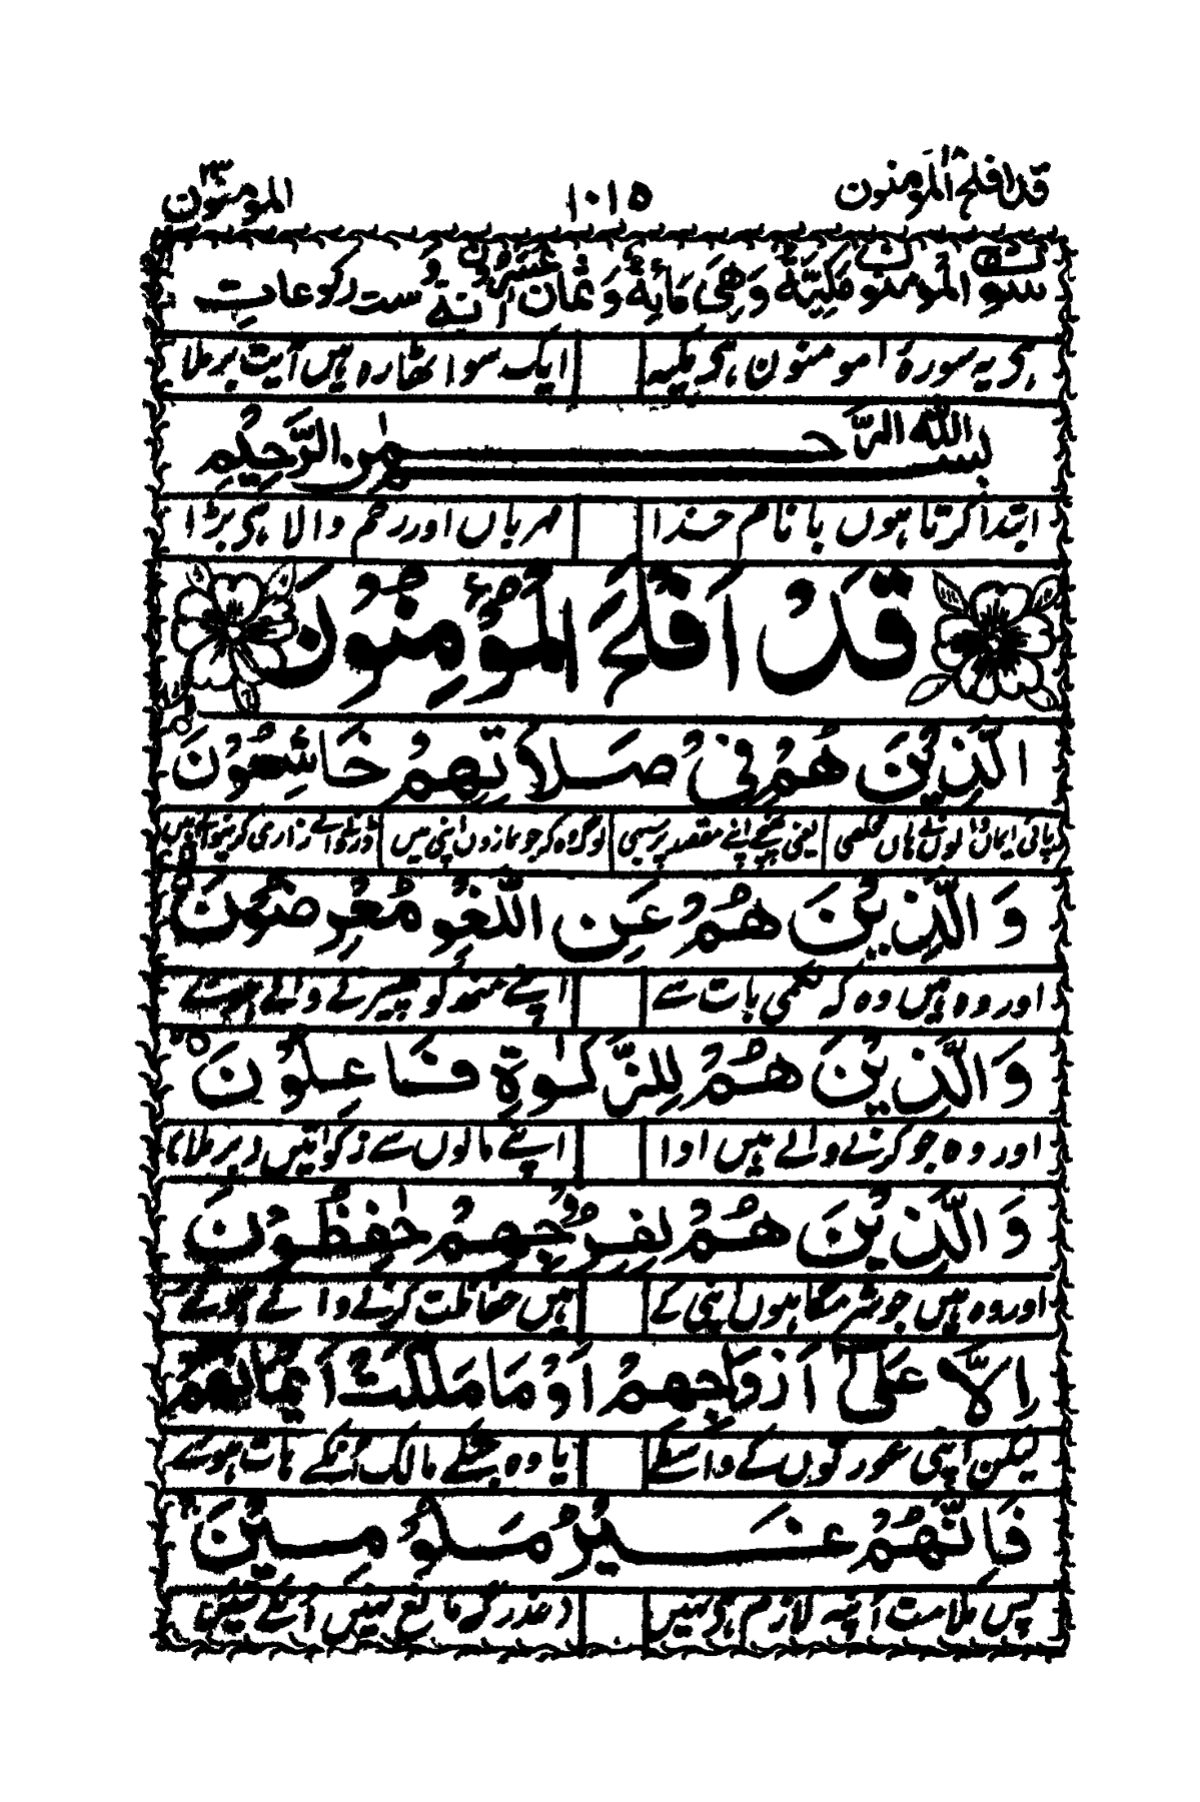 قد افلح المومنون ۱۸ ۱۰۱۵ المومنون ۲۳
سورة المومنون مكية وهى مائة وثمان عشرة اٰية وست ركوعات
ہے یہ سورہ مومنون ہی مکیہ ایک سو اٹھارہ ہیں آیت برملا
بسم الله الرحمٰن الرحیم
ابتدا کرتا ہوں با نام خدا مہرباں اور رحم والا ہی بڑا
قَدْ اَفْلَحَ الْمُؤْمِنُوْنَ
الَّذِيْنَ هُمْ فِىْ صَلَاتِهِمْ خَاشِعُوْنَ
پائی ایمان والوں نے ہاں مخلصی یعنی پہنچے اپنے مقصد پر سبھی لوگ وہ کہ جو نمازوں اپنی میں
وَ الَّذِيْنَ هُمْ عَنِ اللَّغْوِ مُعْرِضُوْنَ
اور وہ ہیں وہ کہ نکمی بات سے اپنے منھ کو پھیرنے والے ہوئے
وَ الَّذِيْنَ هُمْ لِلزَّكٰوةِ فَاعِلُوْنَ
اور وہ جو کرنے والے ہیں ادا اپنے مالوں سے زکوٰتیں برملا
وَ الَّذِيْنَ هُمْ لِفُرُوْجِهِمْ حٰفِظُوْنَ
اور وہ ہیں جو شرمگاہوں اپنی کے ہیں حفاظت کرنے والے ہوئے
اِلَّا عَلٰى اَزْوَاجِهِمْ اَوْ مَا مَلَكَتْ اَيْمَانُهُمْ
لیکن اپنی عورتوں کے واسطے یا وہ جنکے مالک انکے ہات ہوئے
فَاِنَّهُمْ غَيْرُ مَلُوْمِيْنَ
پس ملامت اُنپہ لازم ہی نہیں